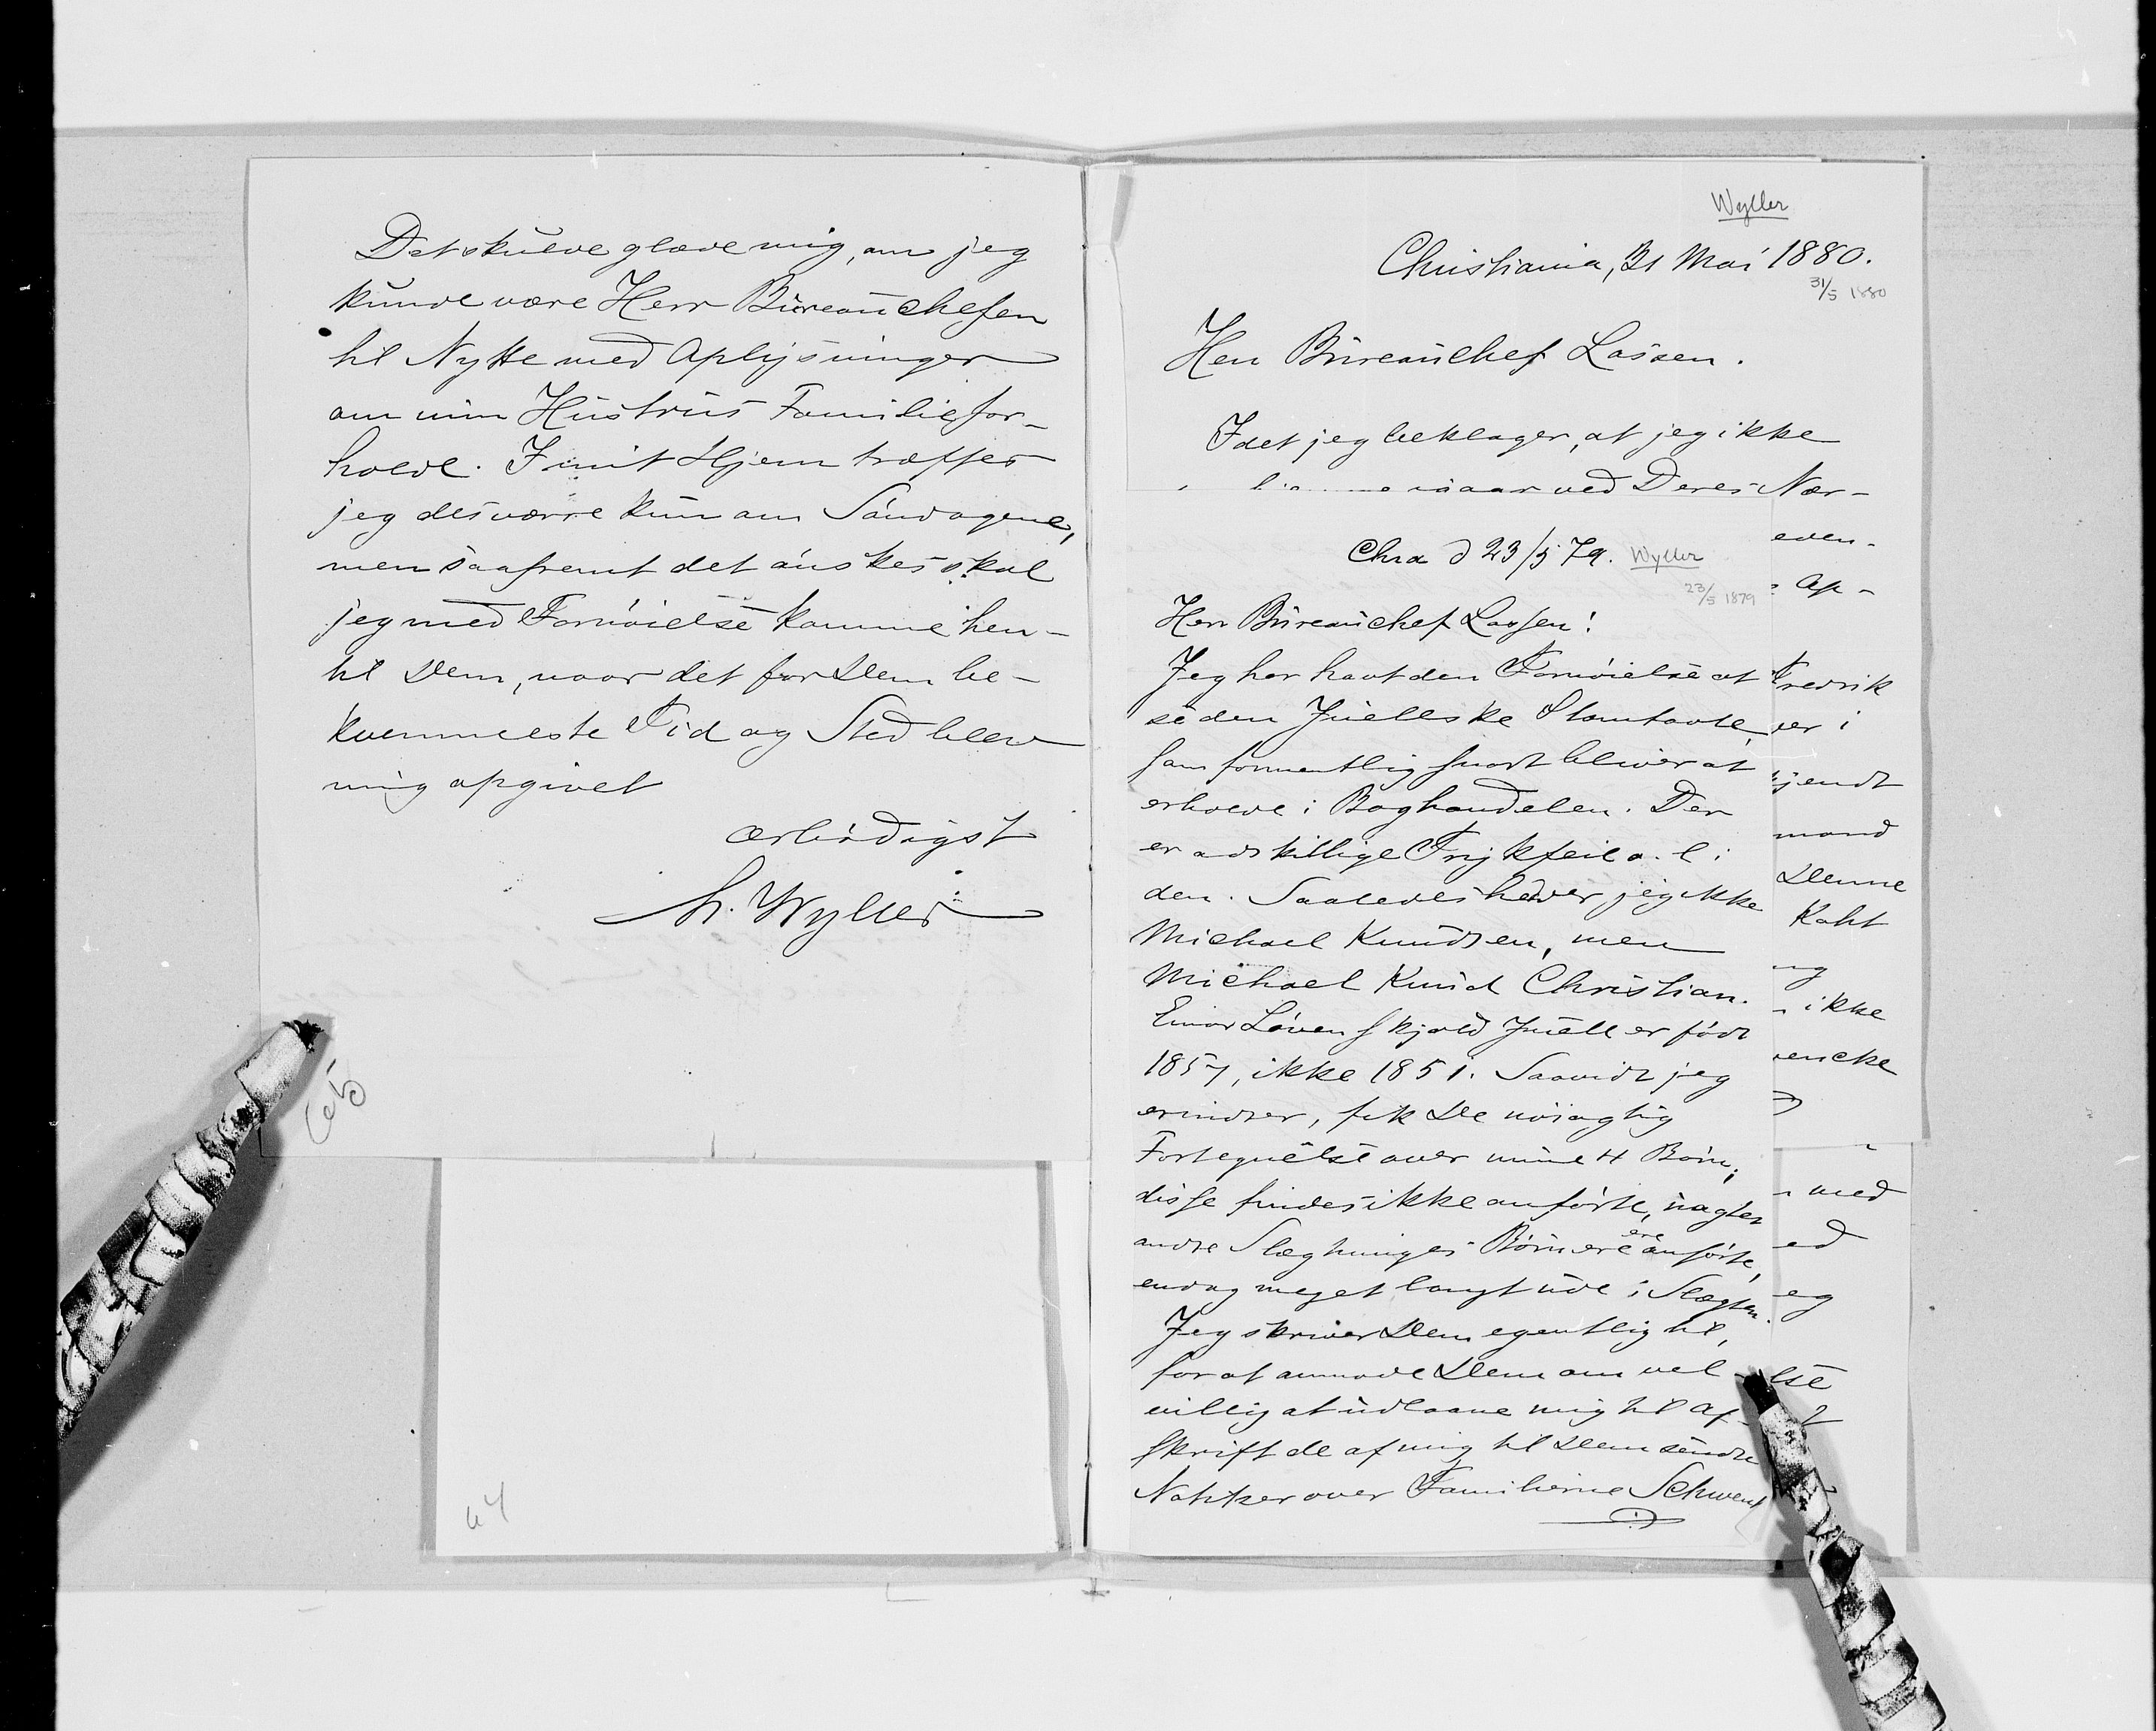 Det skulde glæde mig, om jeg
kunde være Herr Bureauchefen
til Nytte med Oplysninger
om min Hustrus Familiefor-
holde. I mit Hjem træffes
jeg desværre kun om Søndagene,
men saafremt det ønskes skal
jeg med Fornøielse komme hen-
til Dem, naar det for Dem be-
kvemmeste Tid og Sted blev
mig opgivet
ærbødigst
M. Wyller
64
Wyller
Christiania, 31 Mai 1880.
31/5 1880
Herr Bureauchef Lassen.
Idet jeg beklager, at jeg ikke
ved Deres Nær-
Chra d 23/5 79. Wyller
23/5 1879
Herr Bureauchef Lassen!
Jeg har havt den Fornøielse at
se den Juellske Stamtavle,
som formentlig snart bliver at
erholde i Boghandelen. Der
er adskillige Trykfeil o. l. i
den. Saaledes heder jeg ikke
Michael Knudsen, men
Michael Knud Christian.
Einar Løvenskjold Juell er født
1857, ikke 1851. Saavidt jeg
erindrer, fik De nøiagtig
Fortegnelse over mine 4 Børn;
disse findes ikke anførte, uagtet
andre Slægtninges Børn ere anførte,
endog meget langt ude i Slægten.
Jeg skriver Dem egentlig til,
for at anmode Dem om vel-
villig at udlaane mig til Af-
skrift de af mig til Dem sendte
Notitser over Familierne Schwenk
even-
Op-
redrik
ver i
jendt
mand
Denne
Kaht
ng
ikke
vencke
med
ed
eg
lse